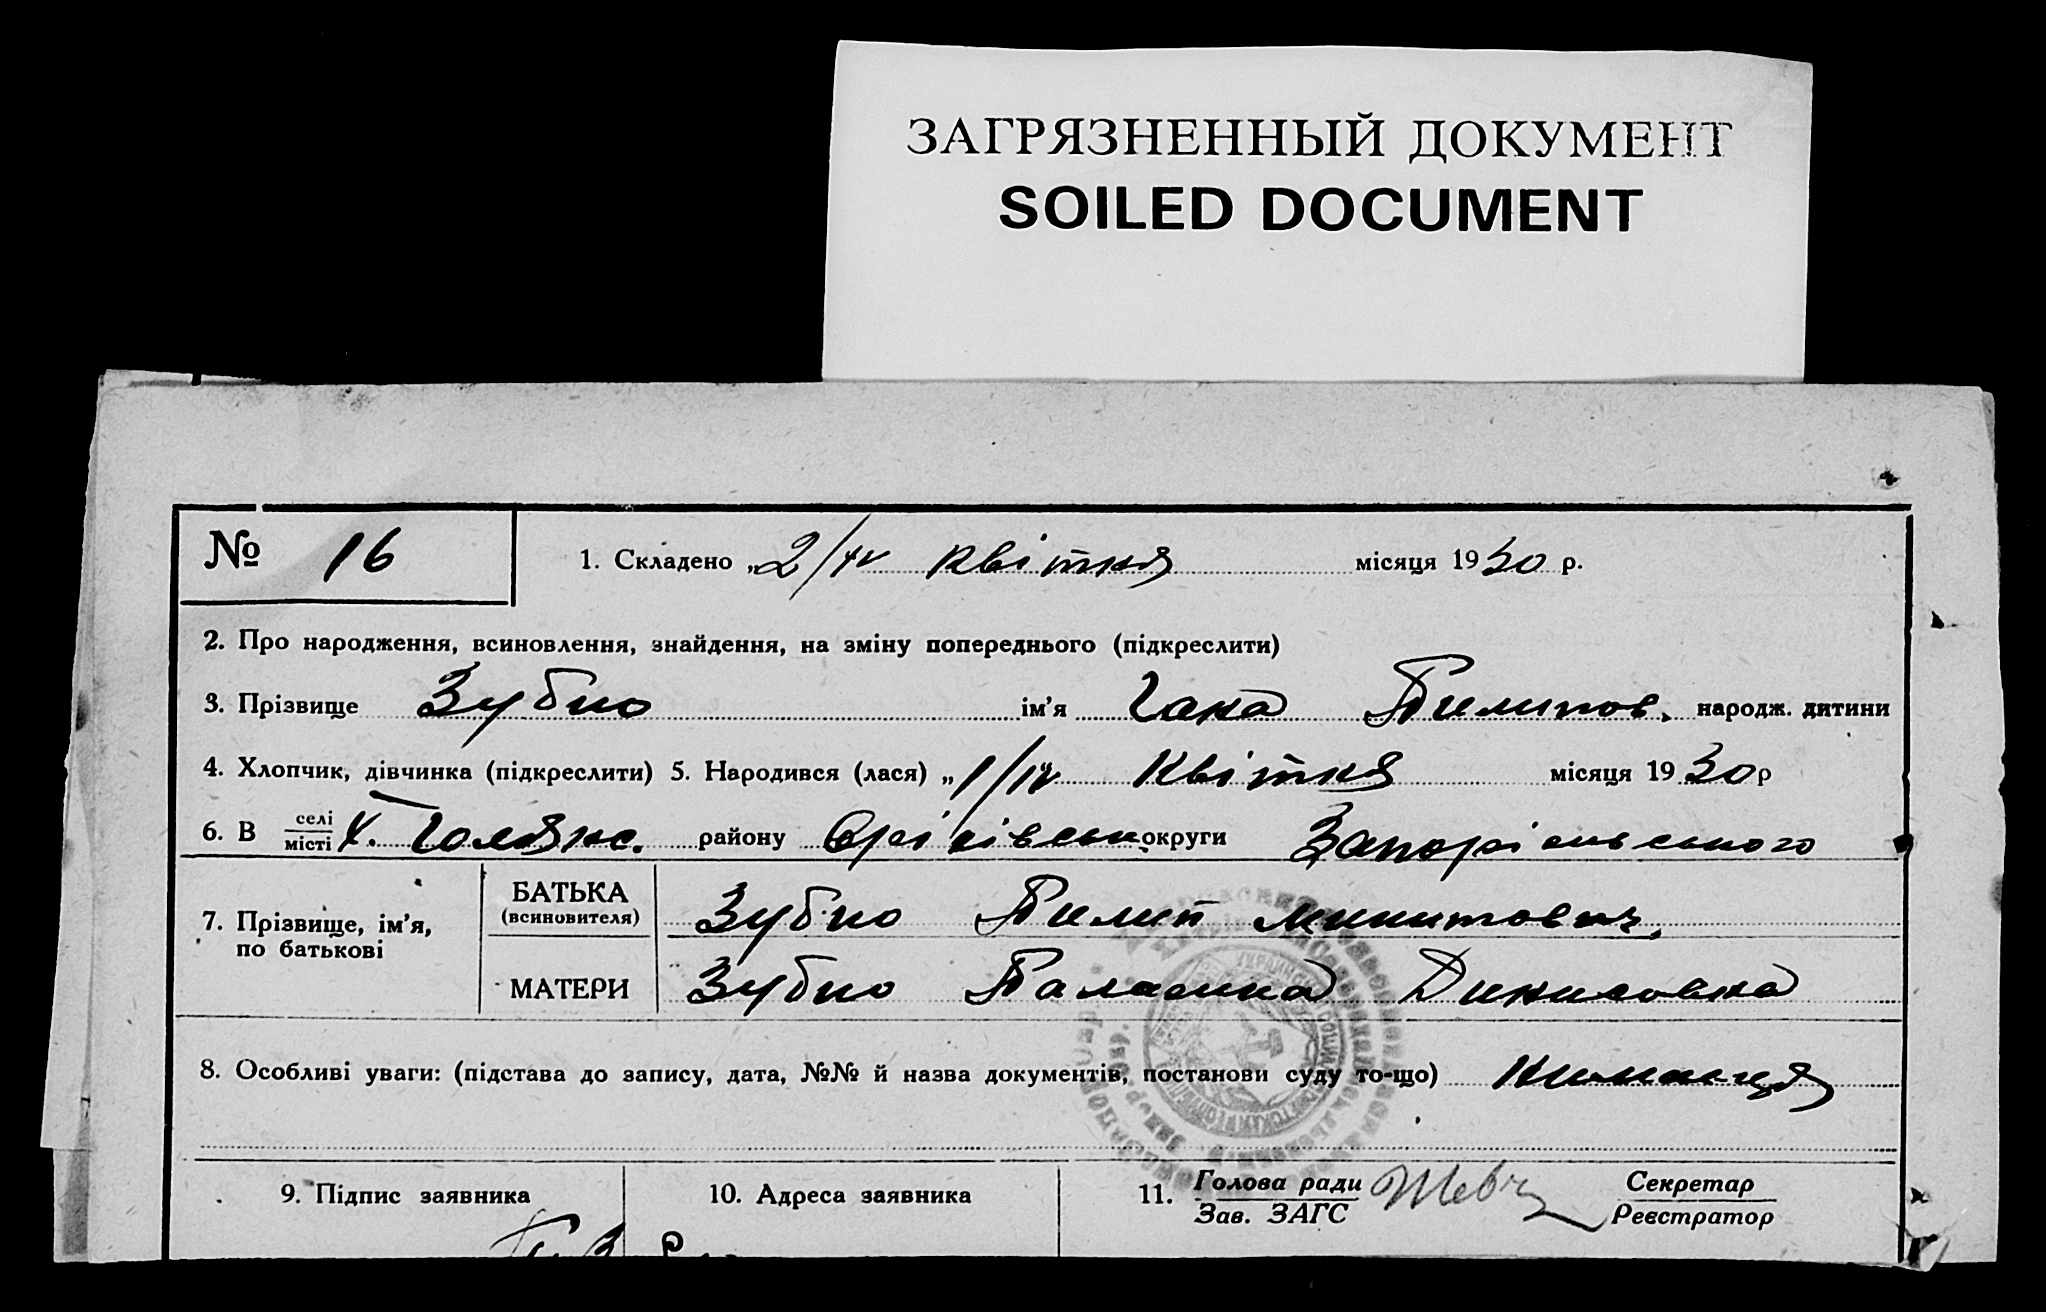 ЗАГРЯЗНЕННЫЙ ДОКУМЕНТ
SOILED DOCUMENT
№ 16
1. Складено „2/IV квітня місяця 1930 р.
2. Про народження, всиновлення, знайдення, на зміну попереднього (підкреслити)
3. Прізвище Зубко ім'я Гана Пилипов. народж. дитини
4. Хлопчик, дівчинка (підкреслити) 5. Народився (лася) „1/IV квітня місяця 1930 р
6. В селі
місті х. району округи
7. Прізвище, ім'я,
по батькові
БАТЬКА
(всиновителя)
Зубко Пилип Микитович.
МАТЕРИ
Зубко Палажка Динисовна
8. Особливі уваги: (підстава до запису, дата, №№ й назва документів, постанови суду то-що)
9. Підпис заявника 10. Адреса заявника 11. Голова ради
Зав. ЗАГС
Секретар
Реєстратор